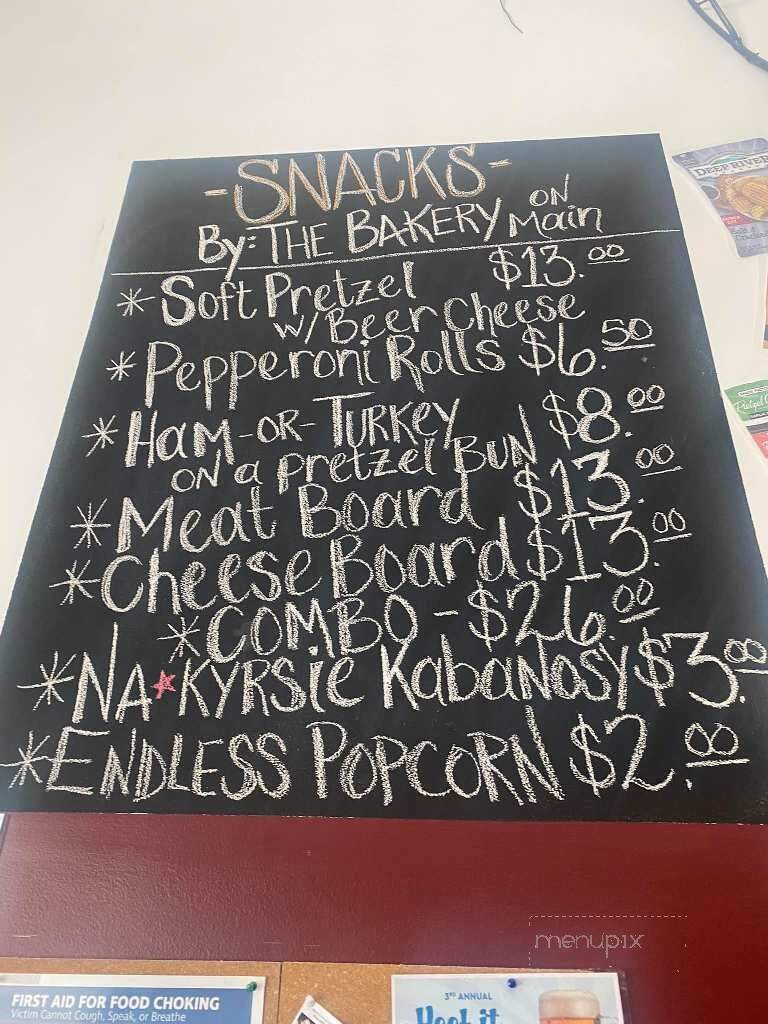 -SNACKS-
By: THE BAKERY ON Main
* Soft Pretzel $13.00
w/ Beer Cheese
* Pepperoni Rolls $6.50
* HAM -OR- TURKEY $8.00
ON a pretzel BUN
* Meat Board $13.00
* Cheese Board $13.00
* COMBO - $26.00
* NA★KYRSIE KabaNOSY $3.00
* ENDLESS POPCORN $2.00
DEEP RIVER
menupix
FIRST AID FOR FOOD CHOKING
Victim Cannot Cough, Speak, or Breathe
3RD ANNUAL